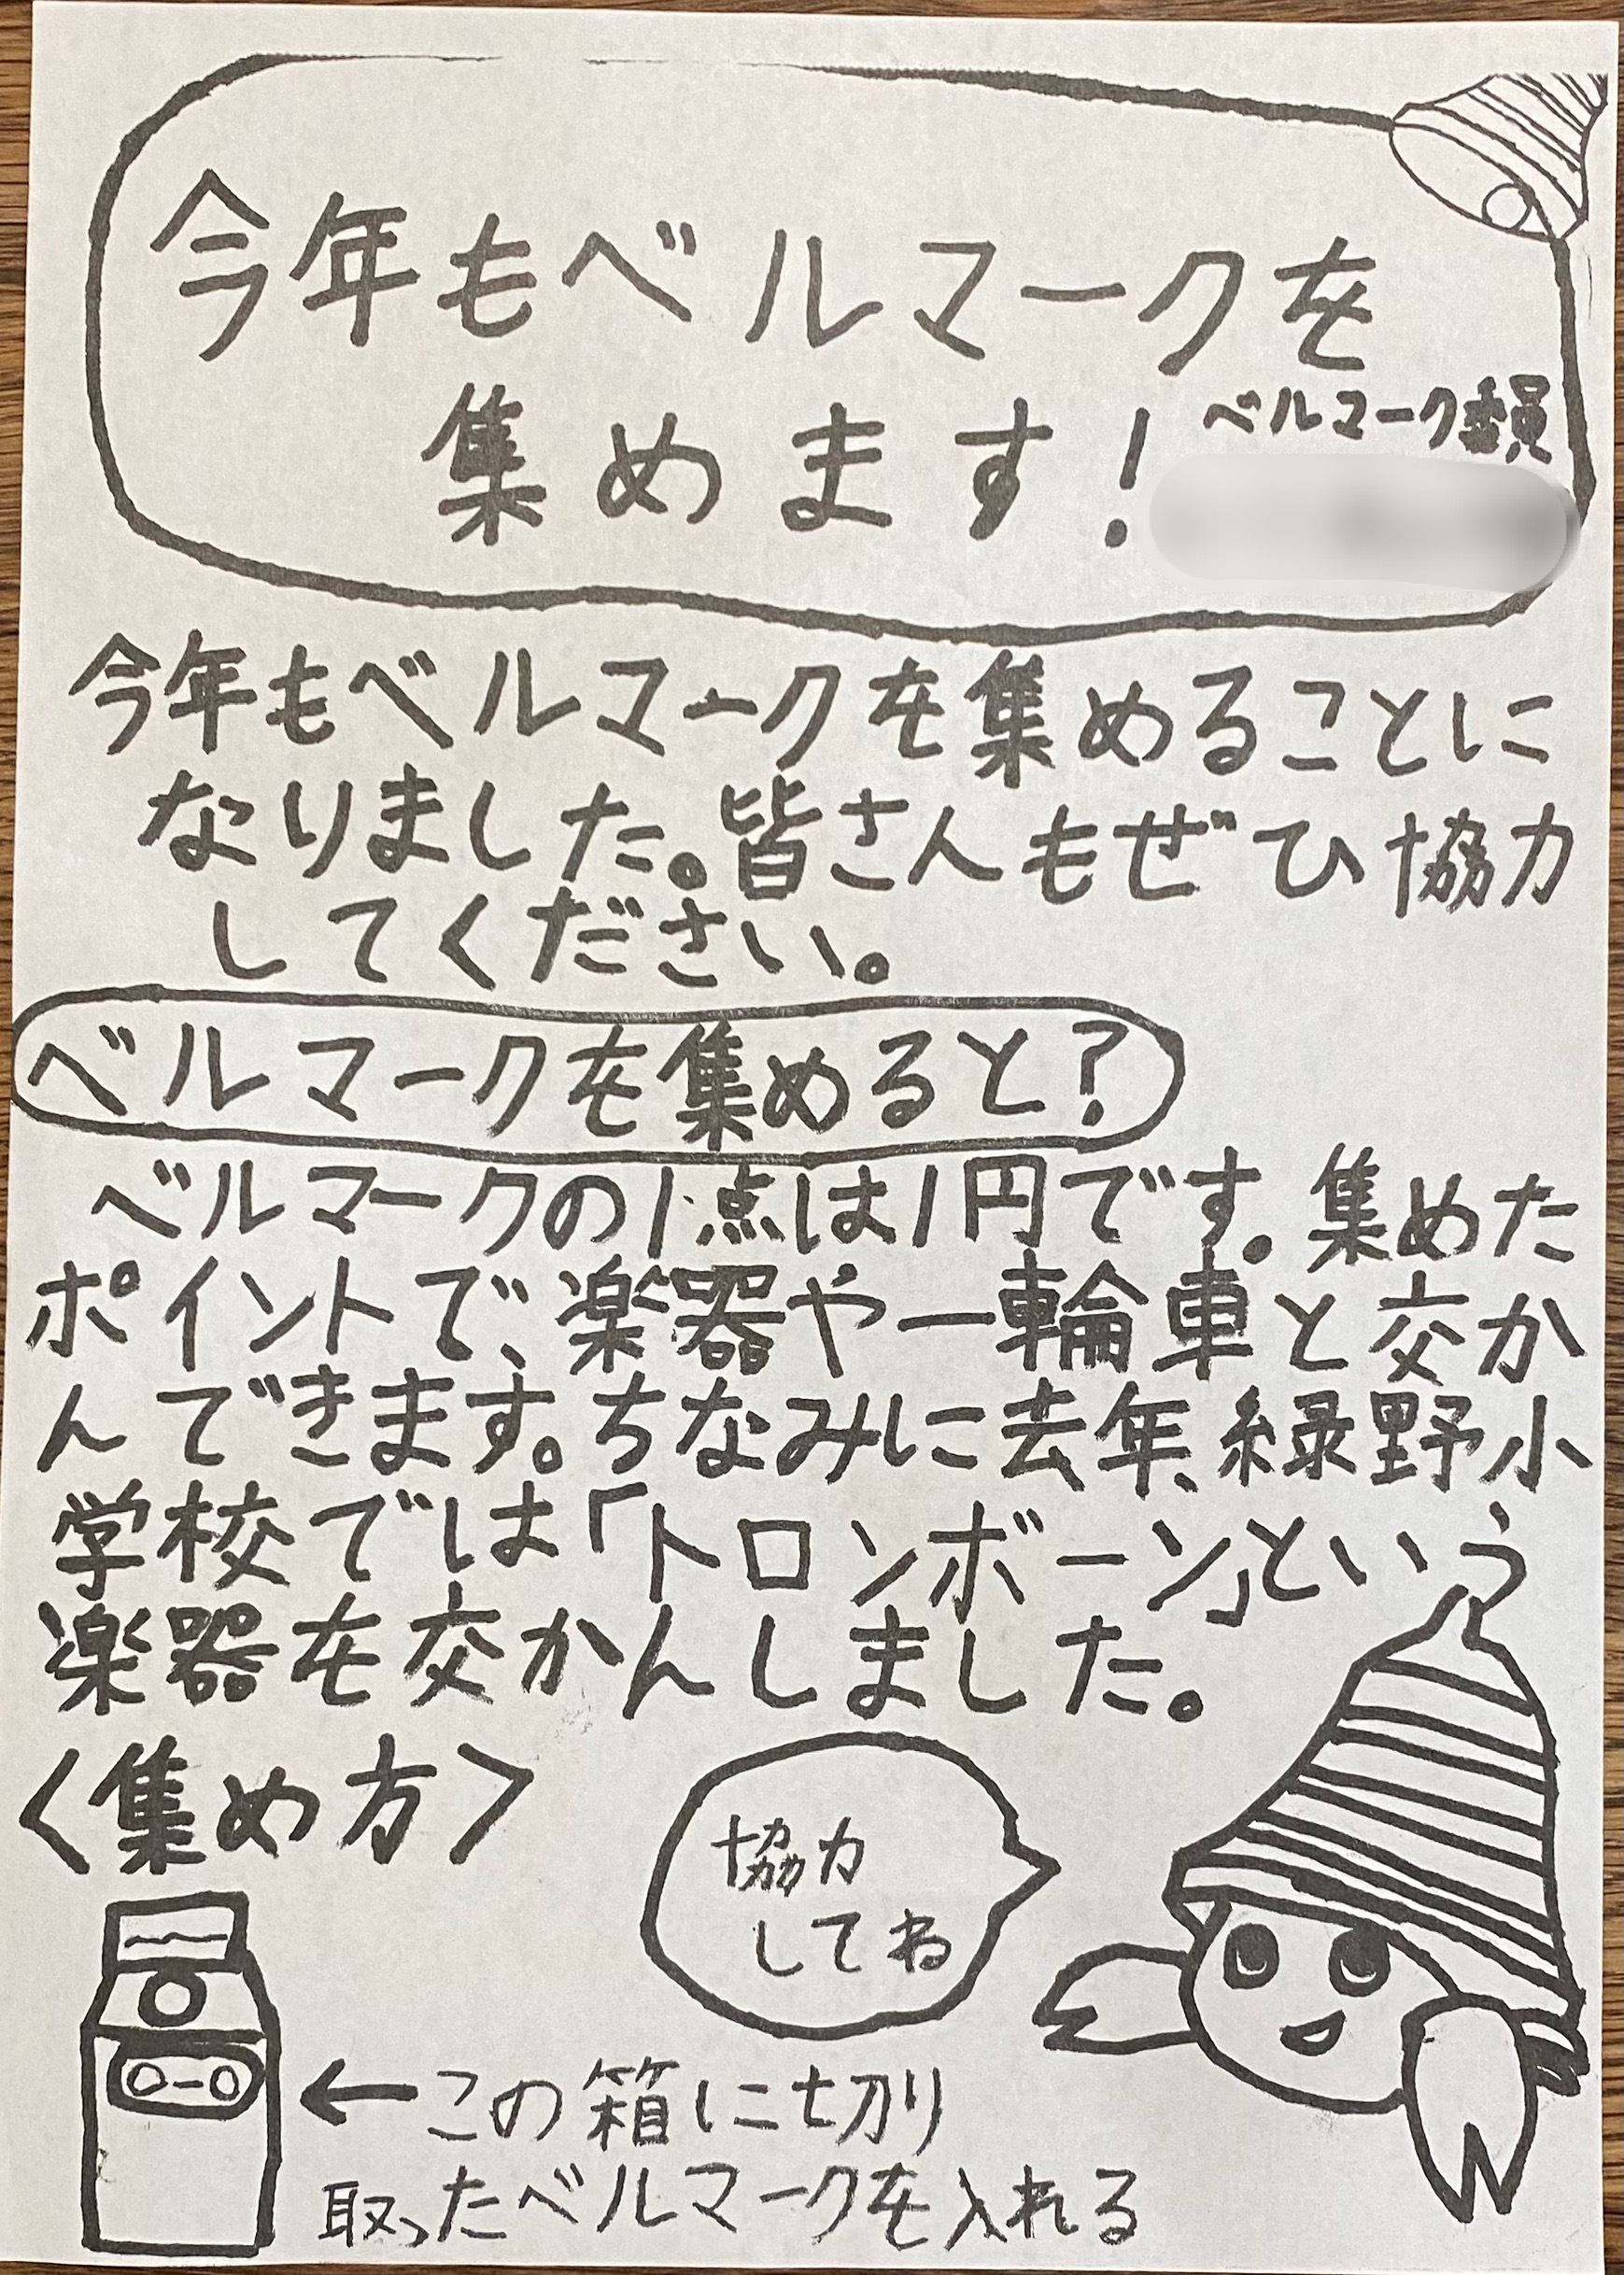 今年もベルマークを
集めます!
ベルマーク委員
今年もベルマークを集めることに
なりました。皆さんもぜひ協力
してください。
ベルマークを集めると?
ベルマークの1点は1円です。集めた
ポイントで、楽器や一輪車と交か
んできます。ちなみに去年、緑野小
学校では「トロンボーン」という
楽器を交かんしました。
<集め方>
協力
してね
←この箱に切り
取ったベルマークを入れる